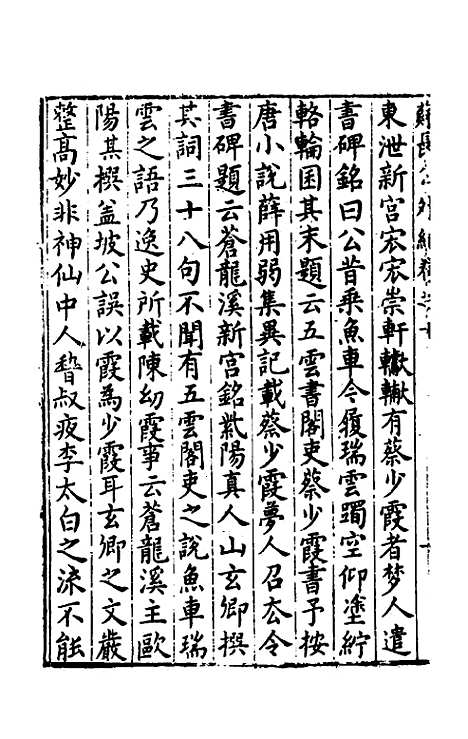 蘇長公外紀卷之十
東泄新宮宏宏崇軒轍轍有蔡少霞者梦人遣
書碑銘曰公昔乗魚車今履瑞雲躅空仰塗綍
輅輪囷其末題云五雲書閣吏蔡少霞書予按
唐小說薛用弱集異記載蔡少霞夢人召厺令
書碑題云蒼龍溪新宮銘紫陽真人山玄卿撰
其詞三十八句不聞有五雲閣吏之說魚車瑞
雲之語乃逸史所載陳幼霞事云蒼龍溪主歐
陽其撰盖坡公誤以霞為少霞耳玄卿之文嚴
整髙妙非神仙中人嵆叔夜李太白之流不能